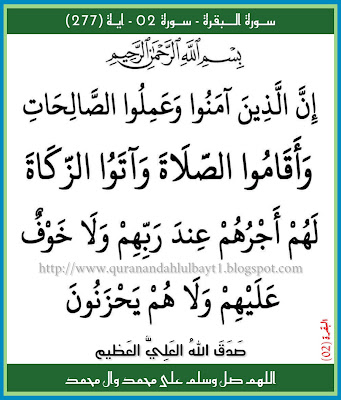 سورة البقرة - سورة 02 - اية (277)
بِسْمِ اللَّهِ الرَّحْمَٰنِ الرَّحِيمِ
إِنَّ الَّذِينَ آمَنُوا وَعَمِلُوا الصَّالِحَاتِ
وَأَقَامُوا الصَّلَاةَ وَآتَوُا الزَّكَاةَ
لَهُمْ أَجْرُهُمْ عِندَ رَبِّهِمْ وَلَا خَوْفٌ
http://www.quranandahlulbayt1.blogspot.com
عَلَيْهِمْ وَلَا هُمْ يَحْزَنُونَ
صَدَقَ اللهُ العَلِيُّ العَظيم
البقرة (02)
اللهم صل وسلم على محمد وال محمد